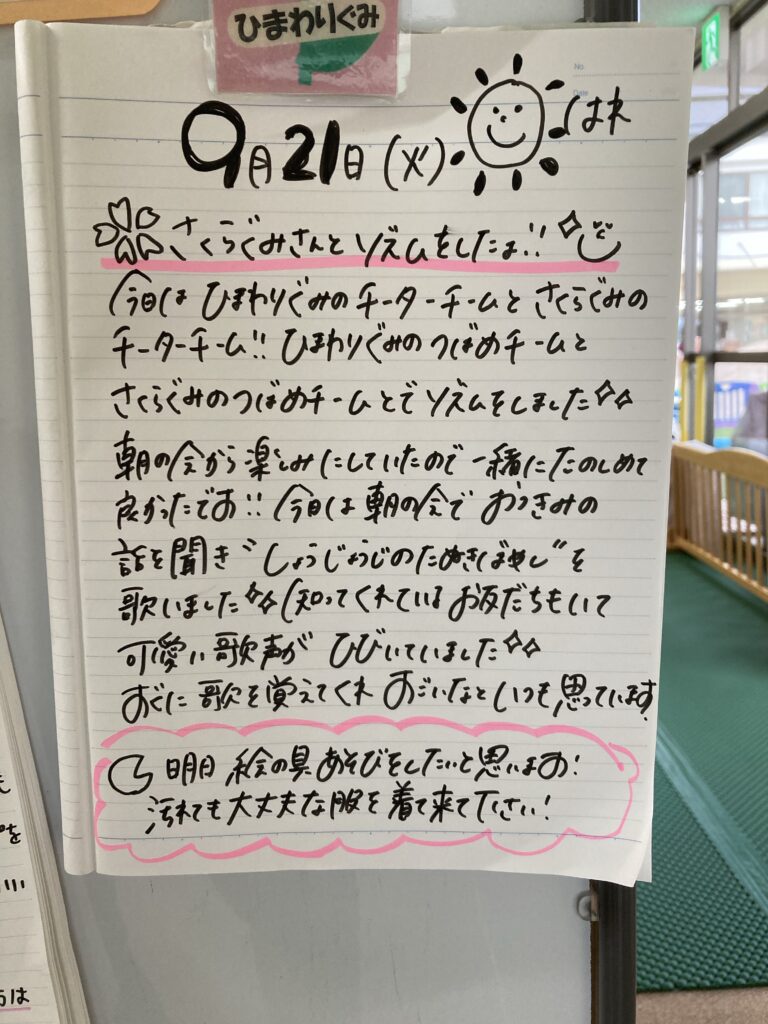 ひまわりぐみ
No.
Date
9月21日(火) はれ
さくらぐみさんとリズムをしたよ!!
今日は ひまわりぐみのチーターチームと さくらぐみの
チーターチーム!! ひまわりぐみの つばめチームと
さくらぐみのつばめチームとで リズムをしました
朝の会から 楽しみにしていたので 一緒にたのしめて
良かったです!! 今日は 朝の会で おつきみの
話を聞き "しょうじょうじのたぬきばやし" を
歌いました (知ってくれている お友だちもいて
可愛い 歌声が ひびいていました
すぐに 歌を覚えてくれ すごいなと いつも 思っています
明日 絵の具 あそびをしたいと思います!
汚れても 大丈夫な服を 着て来て下さい!
を
は